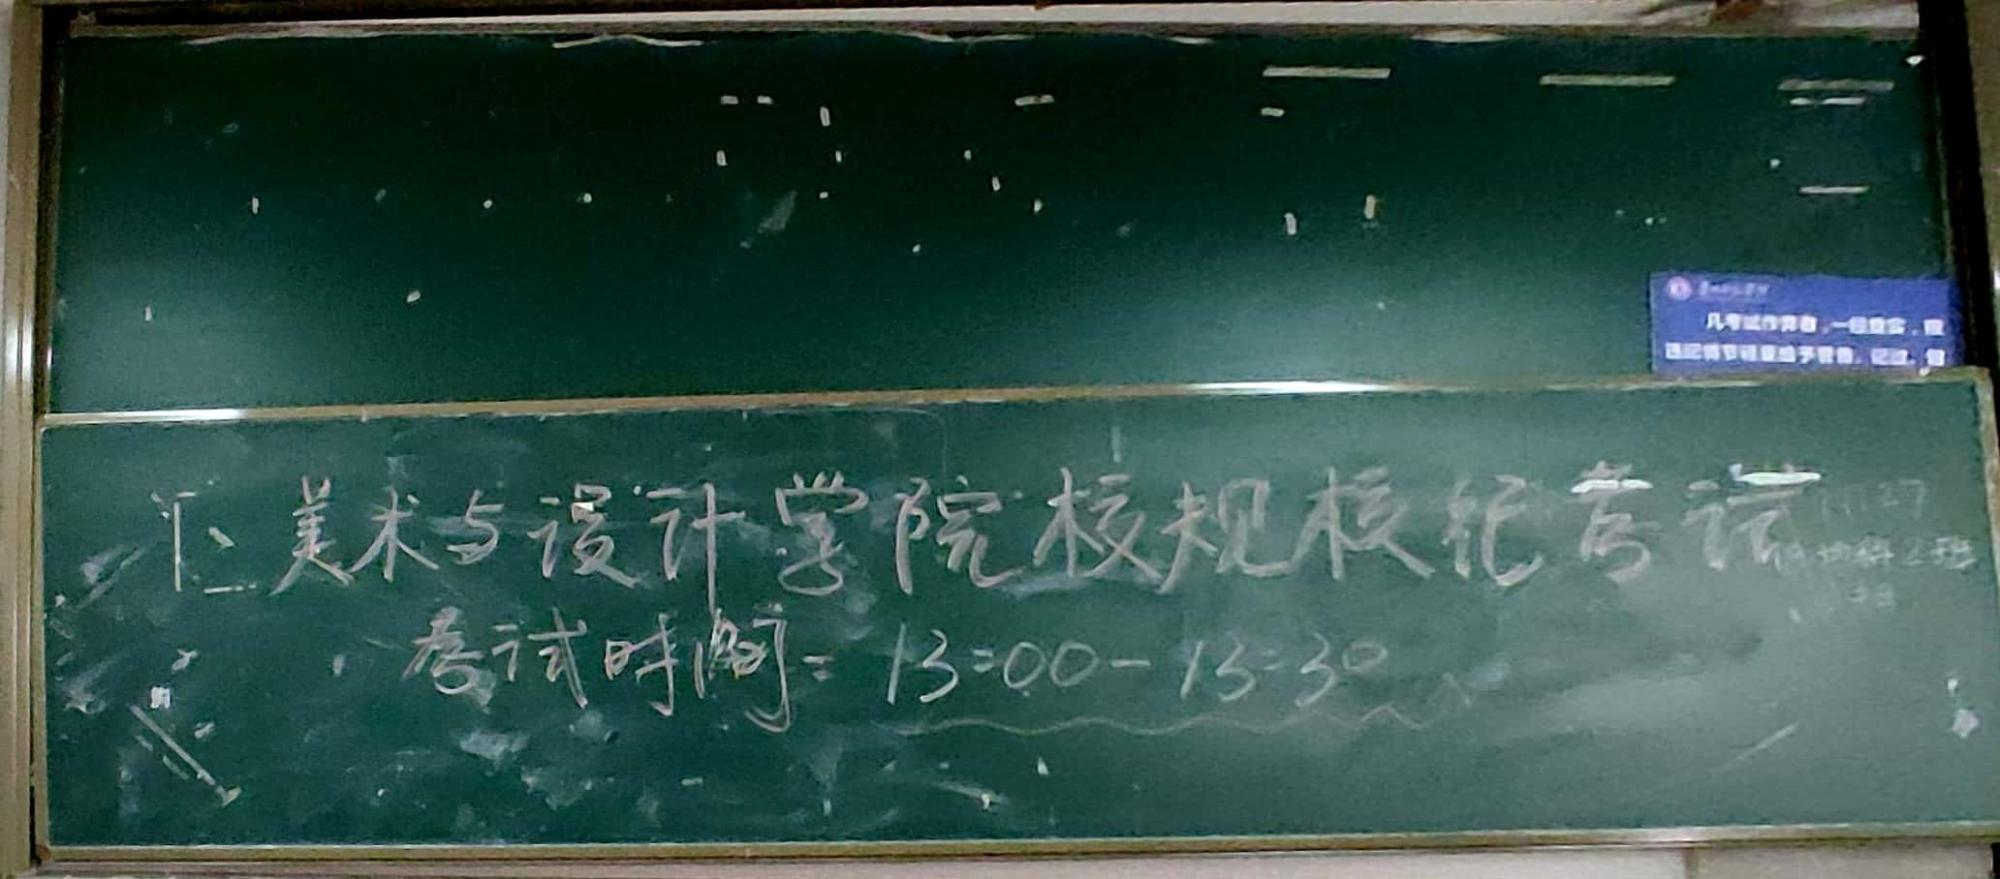 凡考试作弊者,一经查实,视
违纪情节轻重给予警告、记过、留
美术与设计学院校规校纪考试
考试时间:13:00-13:30